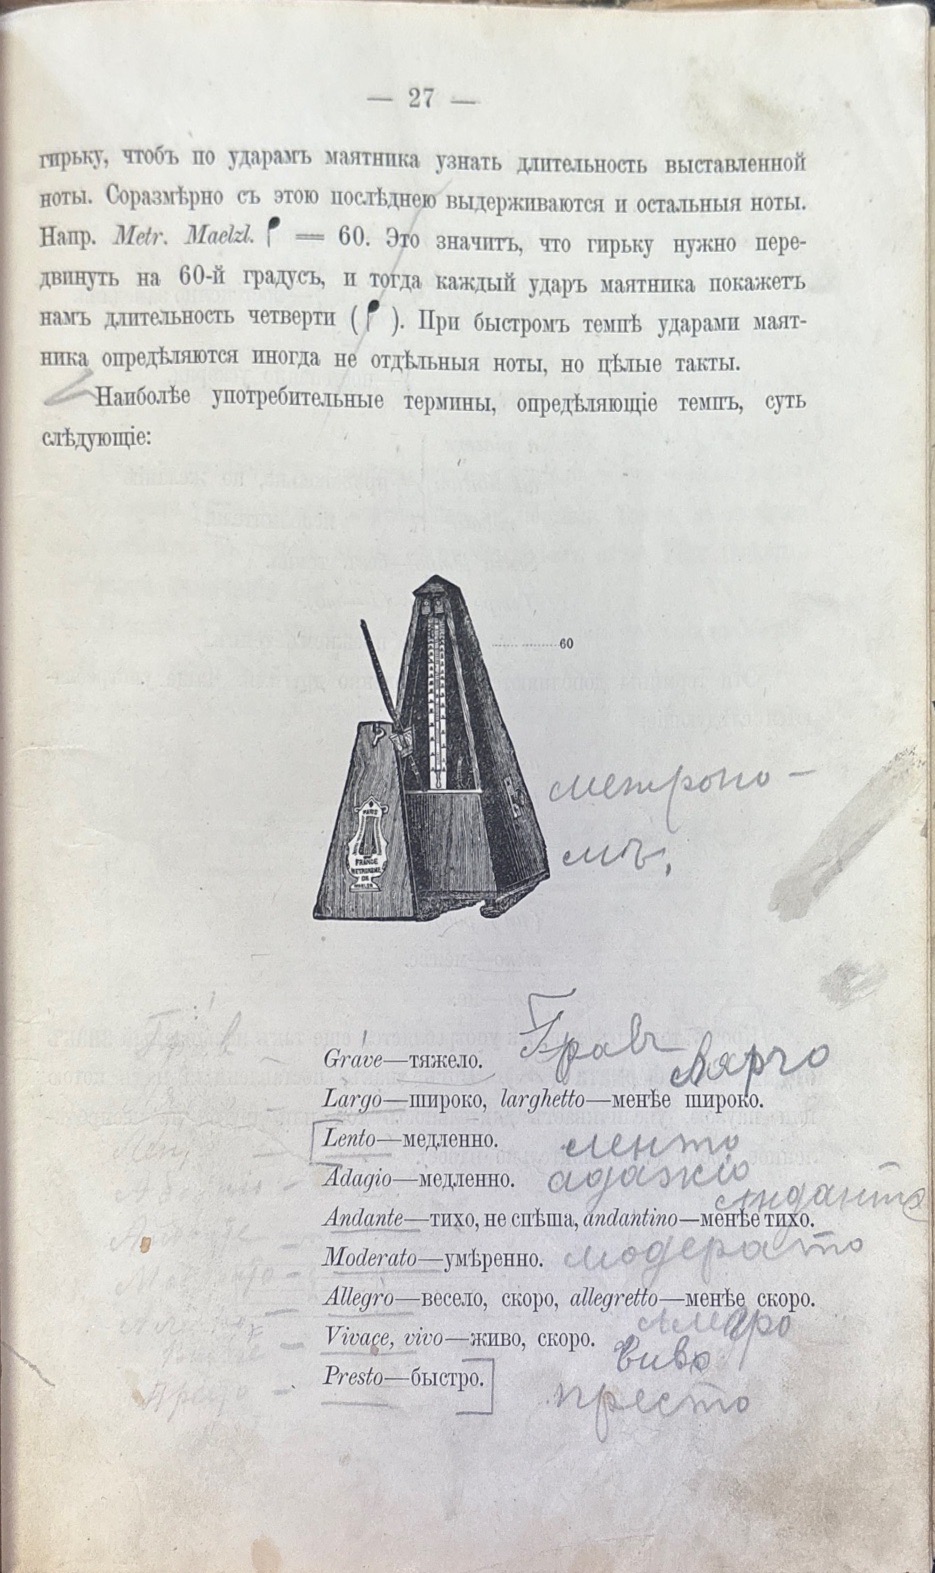 — 27 —
гирьку, чтобъ по ударамъ маятника узнать длительность выставленной
ноты. Соразмѣрно съ этою послѣднею выдерживаются и остальныя ноты.
Напр. Metr. Maelzl. = 60. Это значитъ, что гирьку нужно пере-
двинуть на 60-й градусъ, и тогда каждый ударъ маятника покажетъ
намъ длительность четверти ( ). При быстромъ темпѣ ударами маят-
ника опредѣляются иногда не отдѣльныя ноты, но цѣлые такты.
Наиболѣе употребительные термины, опредѣляющіе темпъ, суть
слѣдующіе:
60
метроно-
мъ,
PARIS
FRANCE
METRONOME
DE
Гравъ
Лярго
Grave—тяжело.
Largo—широко, larghetto—менѣе широко.
Lento—медленно. ленто
Adagio—медленно. адажіо
Анданте
Andante—тихо, не спѣша, andantino—менѣе тихо.
Moderato—умѣренно. модерато
Allegro—весело, скоро, allegretto—менѣе скоро.
Vivace, vivo—живо, скоро.
виво
Presto—быстро. престо
Престо —